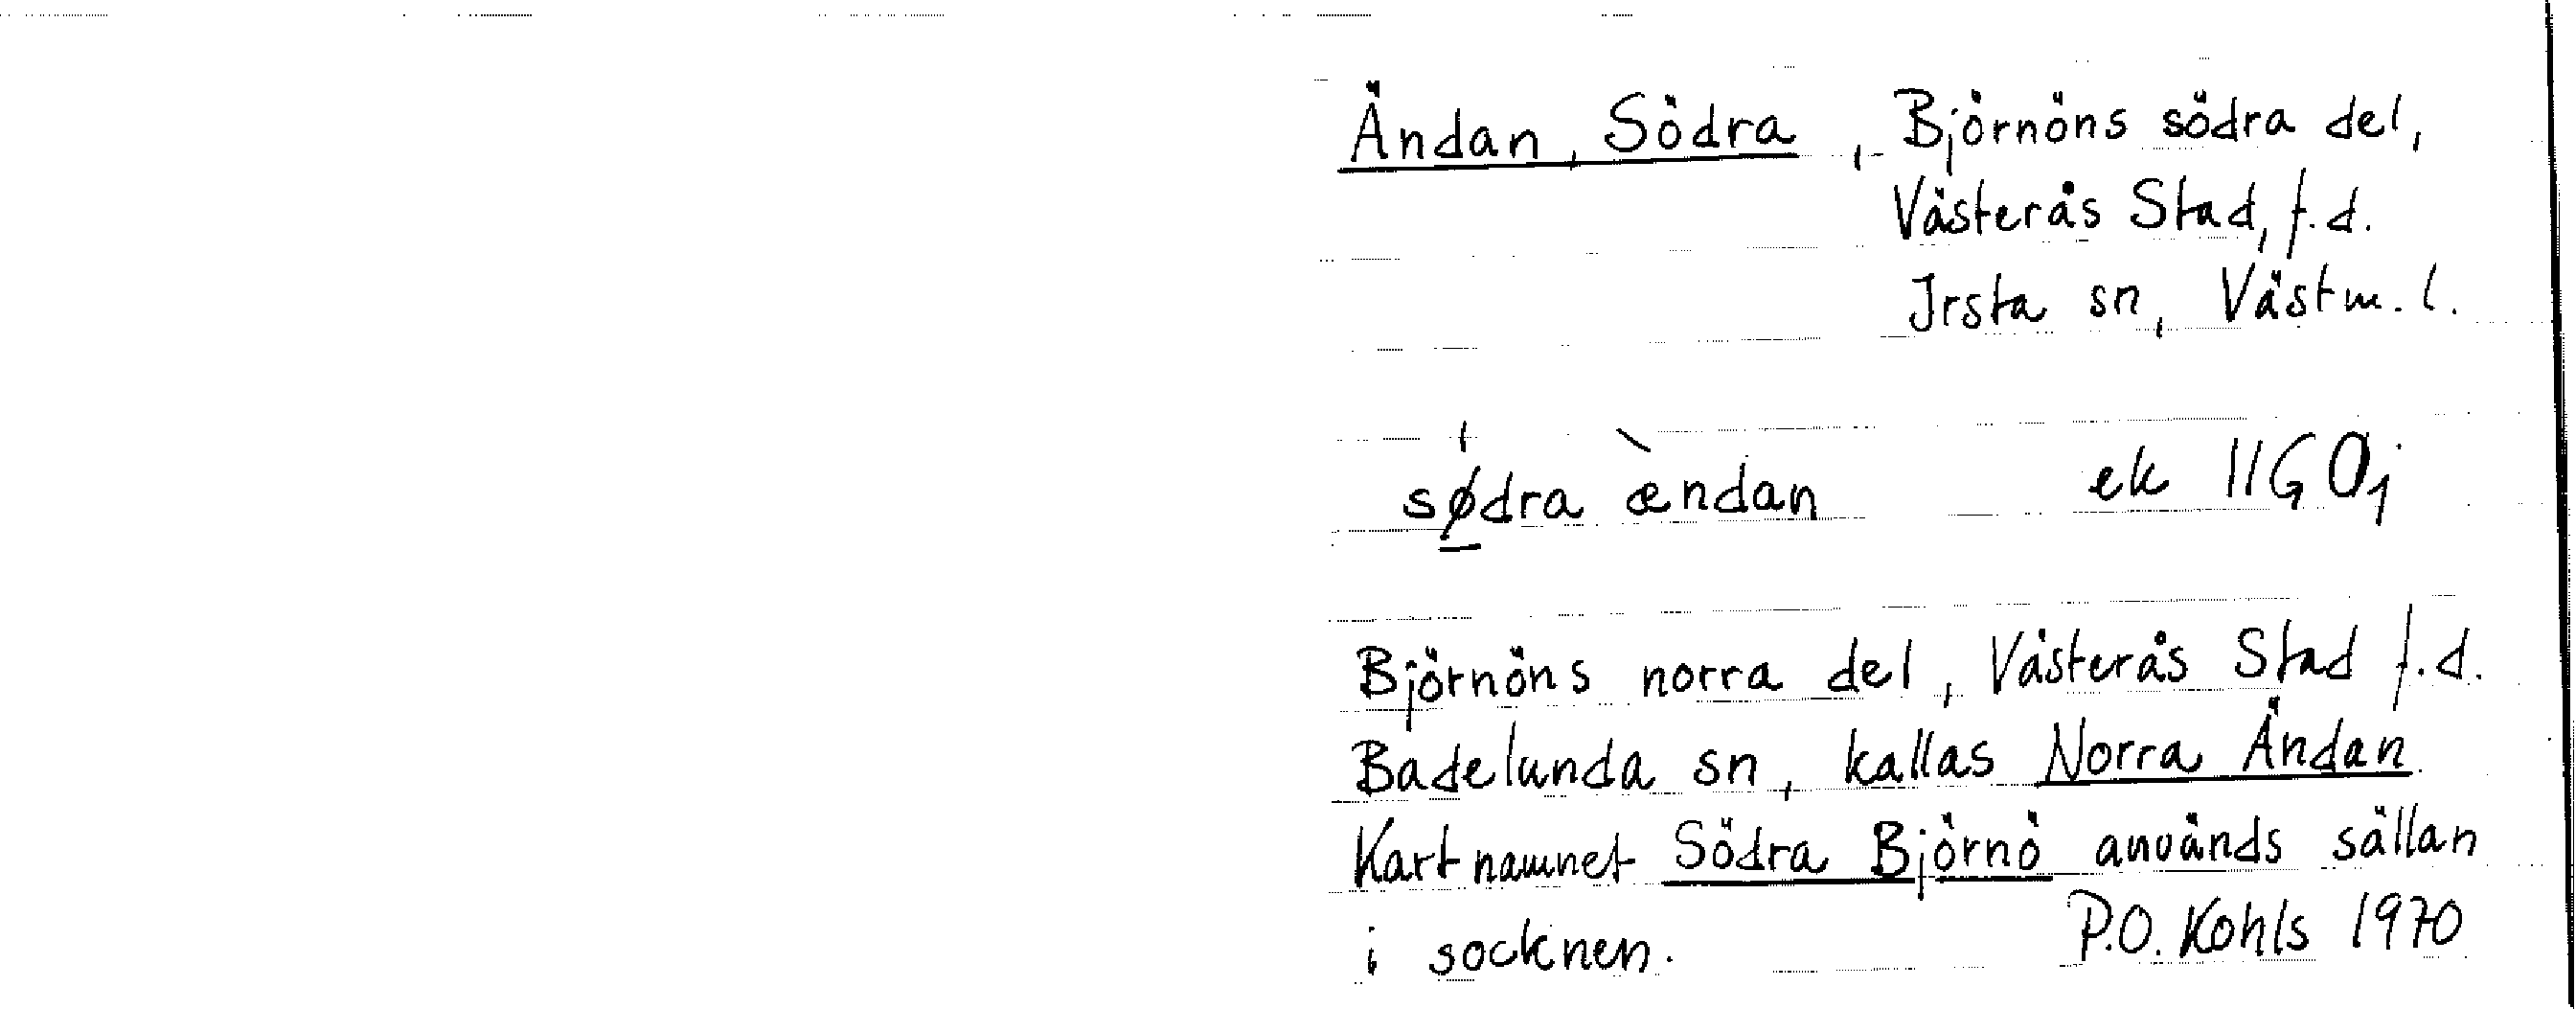 Ändan, Södra, Björnöns södra del,
Västerås Stad, f.d.
Irsta sn, Västm. l.
sǿ̲dra æ̀ndan ek 11G 0j
Björnöns norra del, Västerås Stad f.d.
Badelunda sn, kallas Norra Ändan.
Kartnamnet Södra Björnö används sällan
i socknen. P.O. Kohls 1970